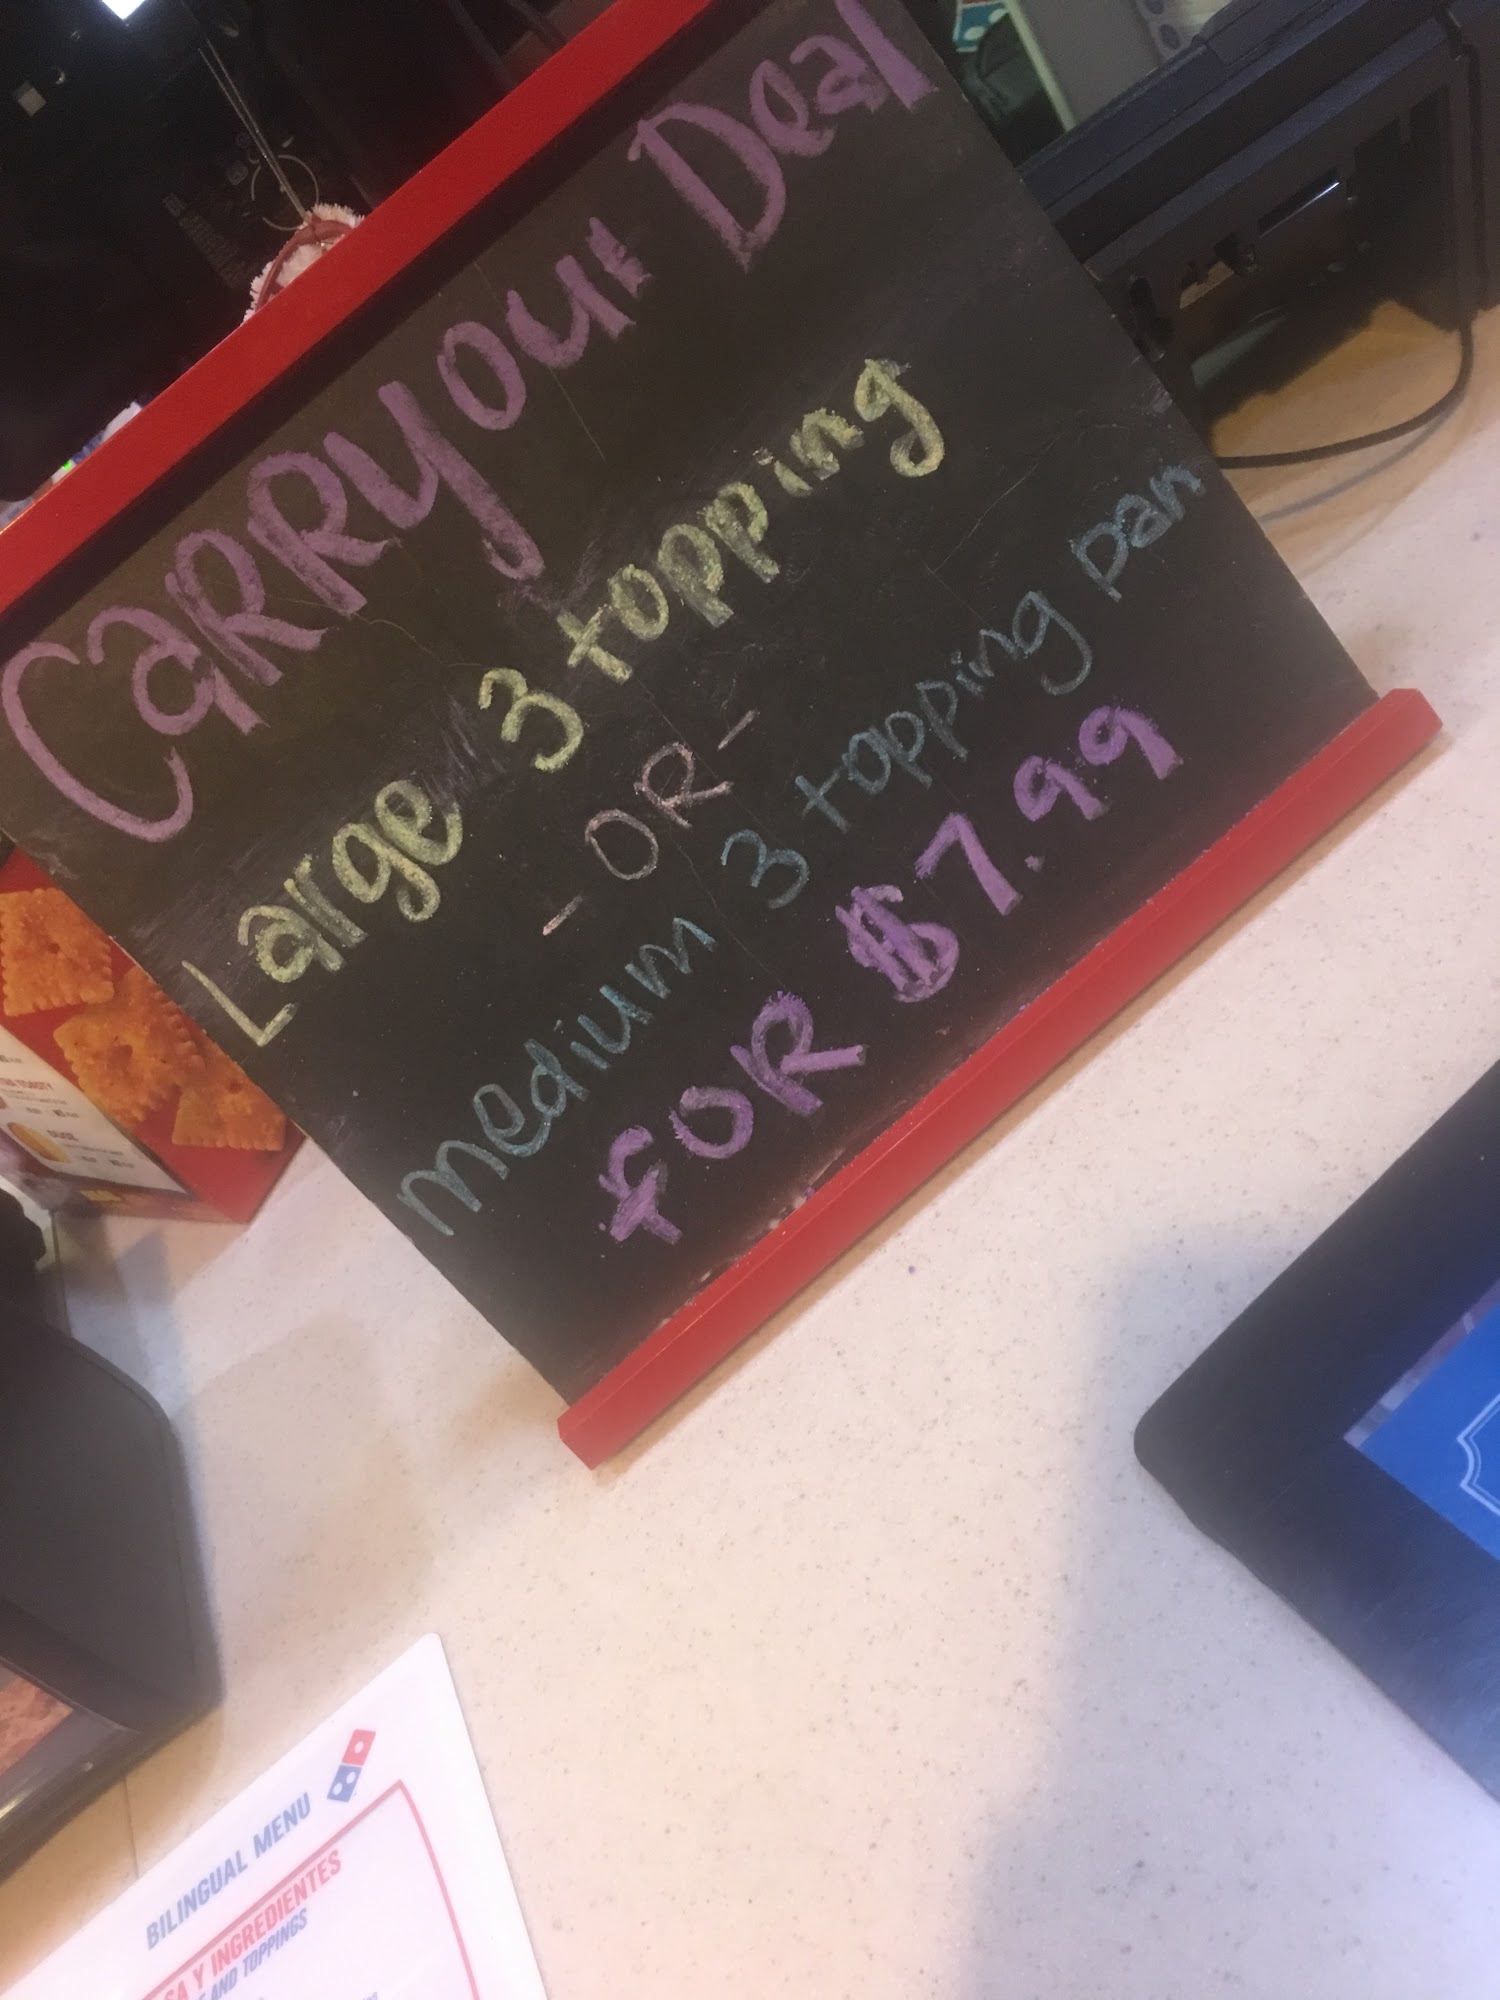 Carryout Deal
Large 3 topping
- OR -
medium 3 topping pan
FOR $7.99
BILINGUAL MENU
Y INGREDIENTES
AND TOPPINGS